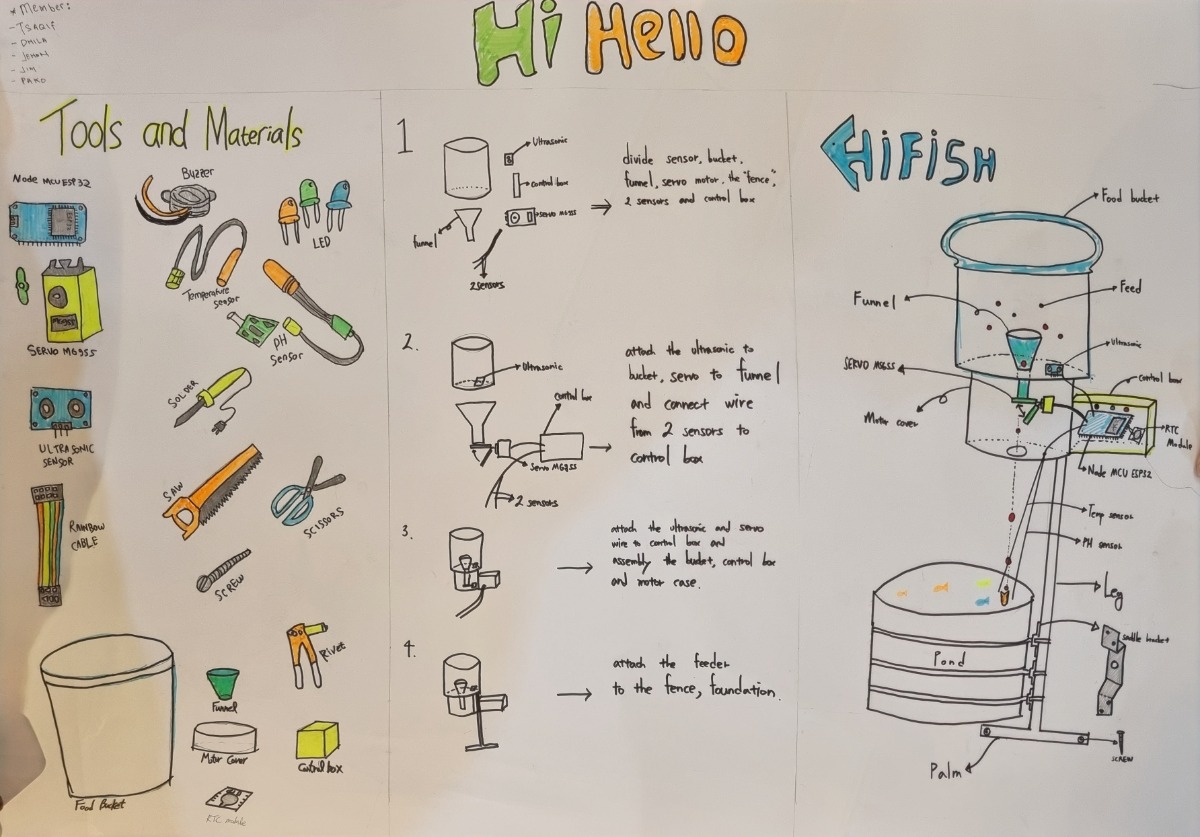 * Member:
- TSAQIF
- DHILA
- JIM
- PAKO
Hi Hello
Tools and Materials
Node MCU ESP32
Buzzer
LED
Temperature
sensor
SERVO MG955
MG955
PH
Sensor
SOLDER
ULTRASONIC
SENSOR
SAW
SCISSORS
RAINBOW
CABLE
SCREW
Rivet
Funnel
Motor Cover
Control box
Food Bucket
RTC module
1
Ultrasonic
control box
SERVO MG955
funnel
2 sensors
divide sensor, bucket,
funnel, servo motor, the "fence",
2 sensors and control box
2.
Ultrasonic
control box
Servo MG955
2 sensors
attach the ultrasonic to
bucket, servo to funnel
and connect wire
from 2 sensors to
control box
3.
attach the ultrasonic and servo
wire to control box and
assembly the bucket, control box
and motor case.
4.
attach the feeder
to the fence, foundation.
HiFiSH
Food bucket
Feed
Funnel
Ultrasonic
SERVO MG955
control box
Motor cover
RTC
Module
Node MCU ESP32
Temp sensor
PH sensor
Leg
saddle bracket
Pond
Palm
SCREW